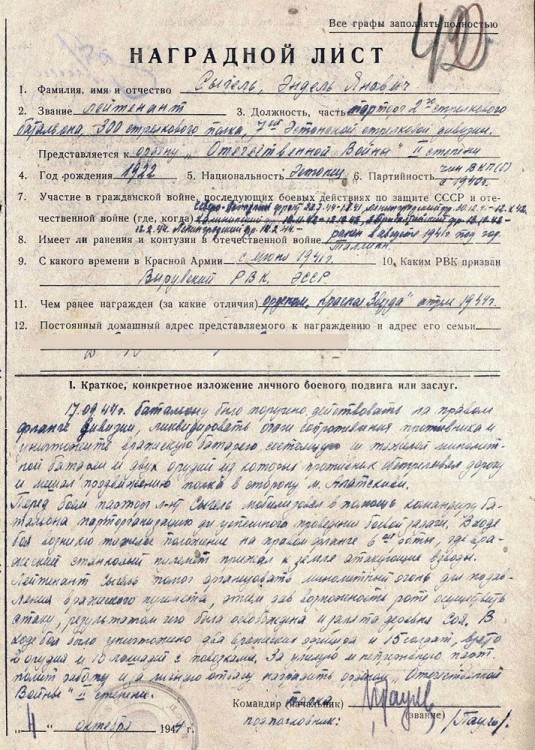 Все графы заполнять полностью
420
НАГРАДНОЙ ЛИСТ
1. Фамилия, имя и отчество Сыгель, Эндель Янович
2. Звание лейтенант 3. Должность, часть парторг 2го стрелкового
батальона, 300 стрелкового полка, 7ой Эстонской стрелковой дивизии.
Представляется к ордену „Отечественной Войны" II степени
4. Год рождения 1922 5. Национальность Эстонец 6. Партийность член ВКП(б)
с 1940г.
7. Участие в гражданской войне, последующих боевых действиях по защите СССР и оте-
чественной войне (где, когда)
12.2.44. Ленинградский фр. 12.2.44-
8. Имеет ли ранения и контузии в отечественной войне ранен в августе 1941г. под гор.
Таллин.
9. С какого времени в Красной Армии с июля 1941г. 10. Каким РВК призван
Вируский РВК, ЭССР
11. Чем ранее награжден (за какие отличия) орденом „Красная Звезда" 1944г.
12. Постоянный домашний адрес представляемого к награждению и адрес его семьи
I. Краткое, конкретное изложение личного боевого подвига или заслуг.
17.09.44г. батальону было поручено действовать на правом
фланге дивизии, ликвидировать очаги сопротивления противника и
уничтожить вражескую батарею состоящую из тяжелой миномет-
ной батареи и двух орудий из которых противник обстреливал дорогу
и мешал продвижению полка в сторону м.
Перед боем парторг л-нт Сыгель мобилизовал в помощь командиру ба-
тальона парторганизацию для успешного проведения боевой задачи. В ходе
боя возникло тяжелое положение на правом фланге роты, где вра-
жеский станковый пулемет прижал к земле атакующие взводы.
Лейтенант Сыгель помог организовать минометный огонь для подав-
ления вражеского пулемета, этим дав возможность роте осуществить
атаку, результатом чего была освобождена и занята деревня Соя. В
ходе боя было уничтожено два вражеских и 15 солдат, взято
2 орудия и 18 лошадей с повозками. За умелую и парт-
полит работу и, а личную отвагу наградить орденом „Отечественной
Войны" II степени.
Командир (начальник) полка
подполковник: (звание) /Пауль/.
„4" октября 1944г.